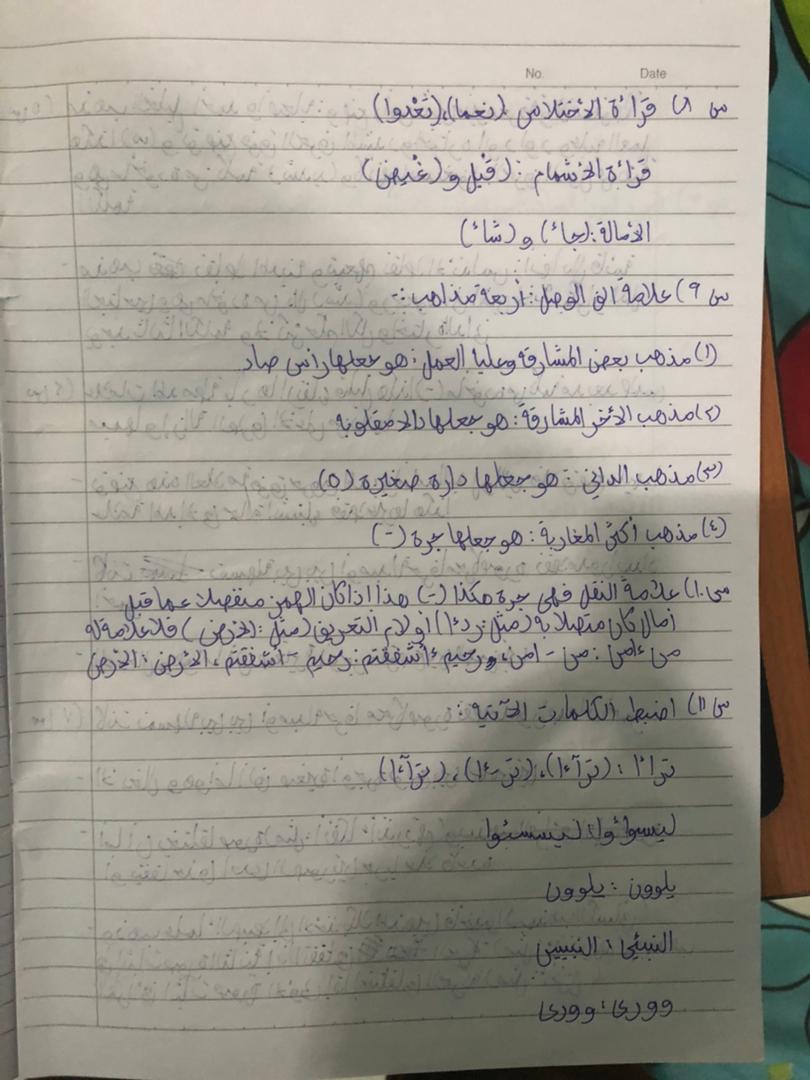 No. Date
س ٨) قرائة الاختلاس (نعما)، (تَعْدوا)
قرائة الاشمام : (قيل و (غيض)
الأمالة : (جاء) و (شاء)
س ٩) علامة الف الوصل : اربعة مذاهب :-
(١) مذهب بعض المشارقة وعليا العمل : هو جعلها راس صاد
(٢) مذهب الأخر المشارقة : هو جعلها دالا مقلوبه
(٣) مذهب الداني : هو جعلها دارة صغيرة (٥)
(٤) مذهب أكثر المغاربة : هو جعلها جرة (-)
س ١٠) علامة النقل فهى جرة هكذا (-) هذا اذا كان الهمز منفصلا عما قبل
امال كان متصلا به (مثل : ردءا) او لام التعريف (مثل : الارض) فلا علامة له
من ءامن : من - امن، رحيم ءأشفقتم : رحيم - أشفقتم، الأرض : الارض
س ١١) اضبط الكلمات الآتية :
ترائا : (ترآءا)، (تر-ءا)، (ترآءا)
ليسوائوا : ليسسئوا
يلوون : يلوون
النبئي : النبيين
وورى : وورى